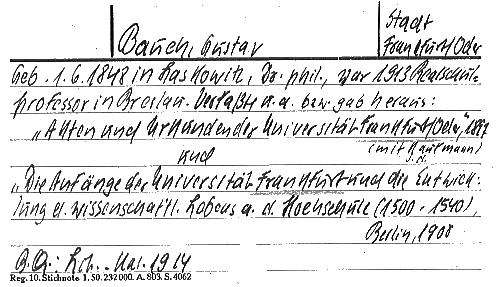 Stadt
Bauch, Gustav Frankfurt/Oder
Geb. 1.6.1848 in Laskowitz, Dr. phil., war 1913 Realschul-
professor in Breslau. Verfaßte u. a. bzw. gab heraus:
„Akten und Urkunden der Universität Frankfurt/Oder", 1897
(mit Kaufmann)
und
„Die Anfänge der Universität Frankfurt und die Entwick-
lung d. wissenschaftl. Lebens a. d. Hochschule (1500-1540),
Berlin, 1900
B.Q.: 1914
Reg. 10. Stichnote 1. 50. 232000. A. 803. S. 4062